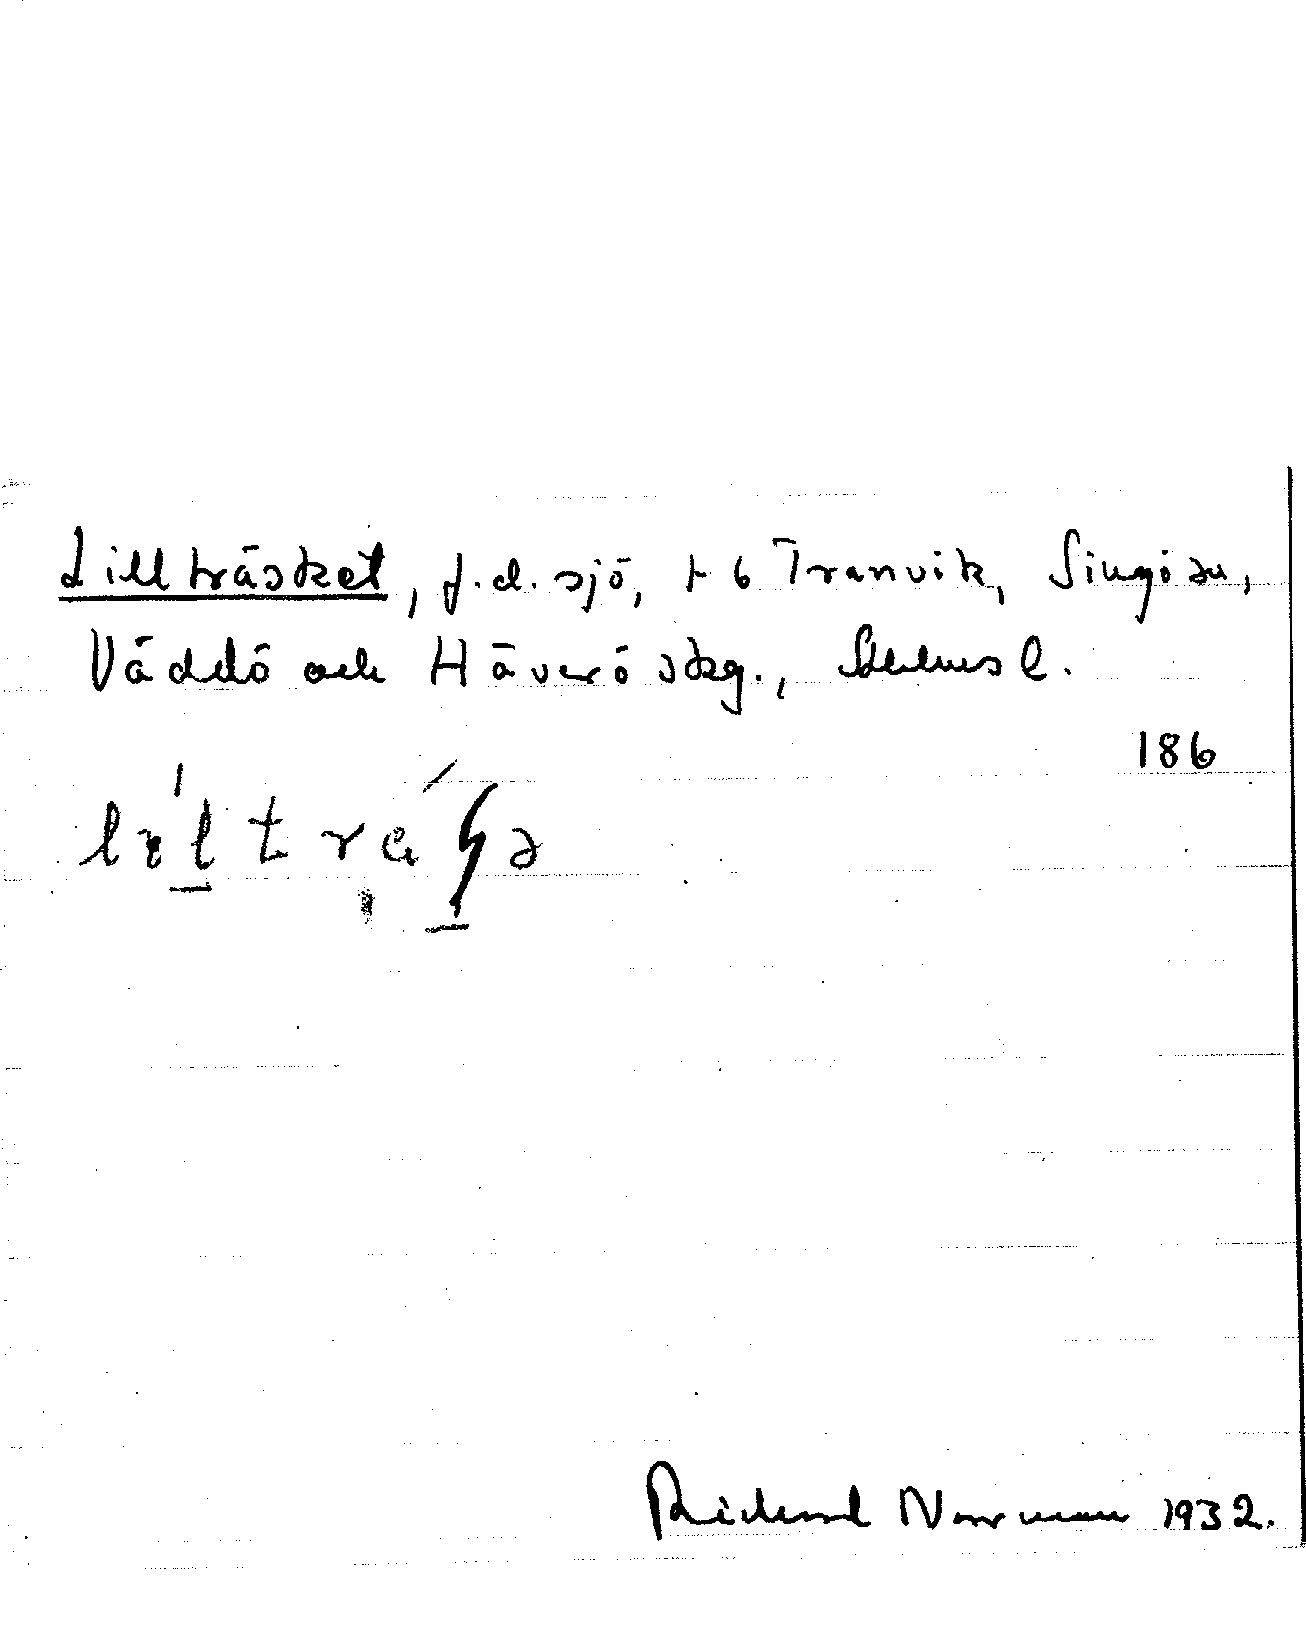 Lillträsket, f.d. sjö, t b Tranvik, Singö sn,
Väddö och Häverö skg., Sthlms l.
186
Rickard Norrman 1932.